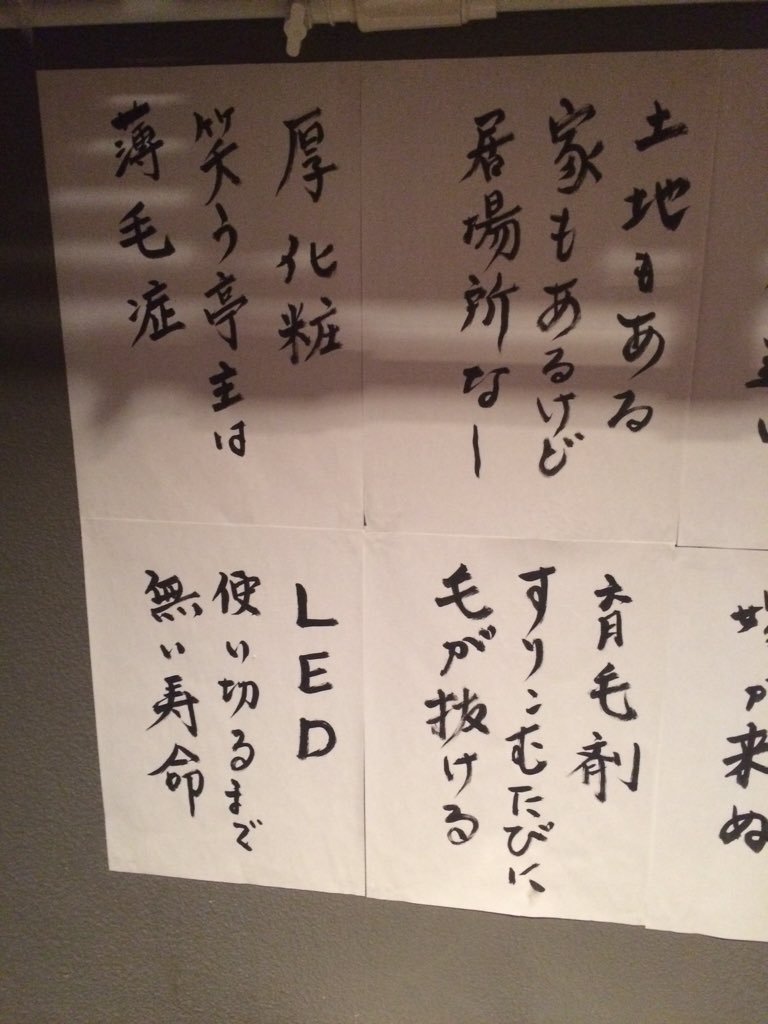 土地もある
家もあるけど
居場所なし
厚化粧
笑う亭主は
薄毛症
育毛剤
すりこむたびに
毛が抜ける
LED
使い切るまで
無い寿命
が来ぬ